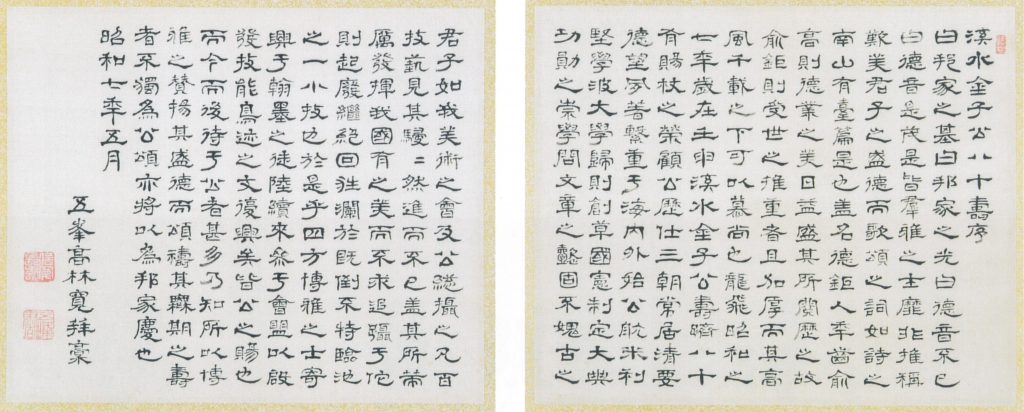 溪水金子公八十壽序
曰邦家之基曰邦家之光曰德音不已
曰德音是茂是皆羣雅之士靡非推稱
歎美君子之盛德而歌頌之詞如詩之
南山有臺篇是也蓋名德鉅人年齒俞
高則德業之美日益盛其所閱歷之故
俞鉅則受世之推重者且加厚而其高
風千載之下可以慕尚也龍飛昭和之
七年歲在壬申溪水金子公壽躋八十
有賜杖之榮顧公歷仕三朝常居清要
德望夙著繫重于海内外始公航米利
堅學波大學歸則創草國憲制定大典
功勛之崇學問文章之懿固不媿古之
君子如我美術之會及公總攝之凡百
技藝見其駸〻然進而不已蓋其所策
厲發揮我國有之美而不求追躡于佗
則起廢繼絕回狂瀾於既倒不特臨池
之一小技也於是乎四方博雅之士寄
興于翰墨之徒陸續來参于會盟以啟
發技能鳥迹之文復興矣皆公之賜也
而今而後待于公者甚多乃知所以博
雅之贊揚其盛德而頌禱其期之壽
者不獨為公頌亦將以為邦家慶也
昭和七年五月
五峯高林寬拜稾